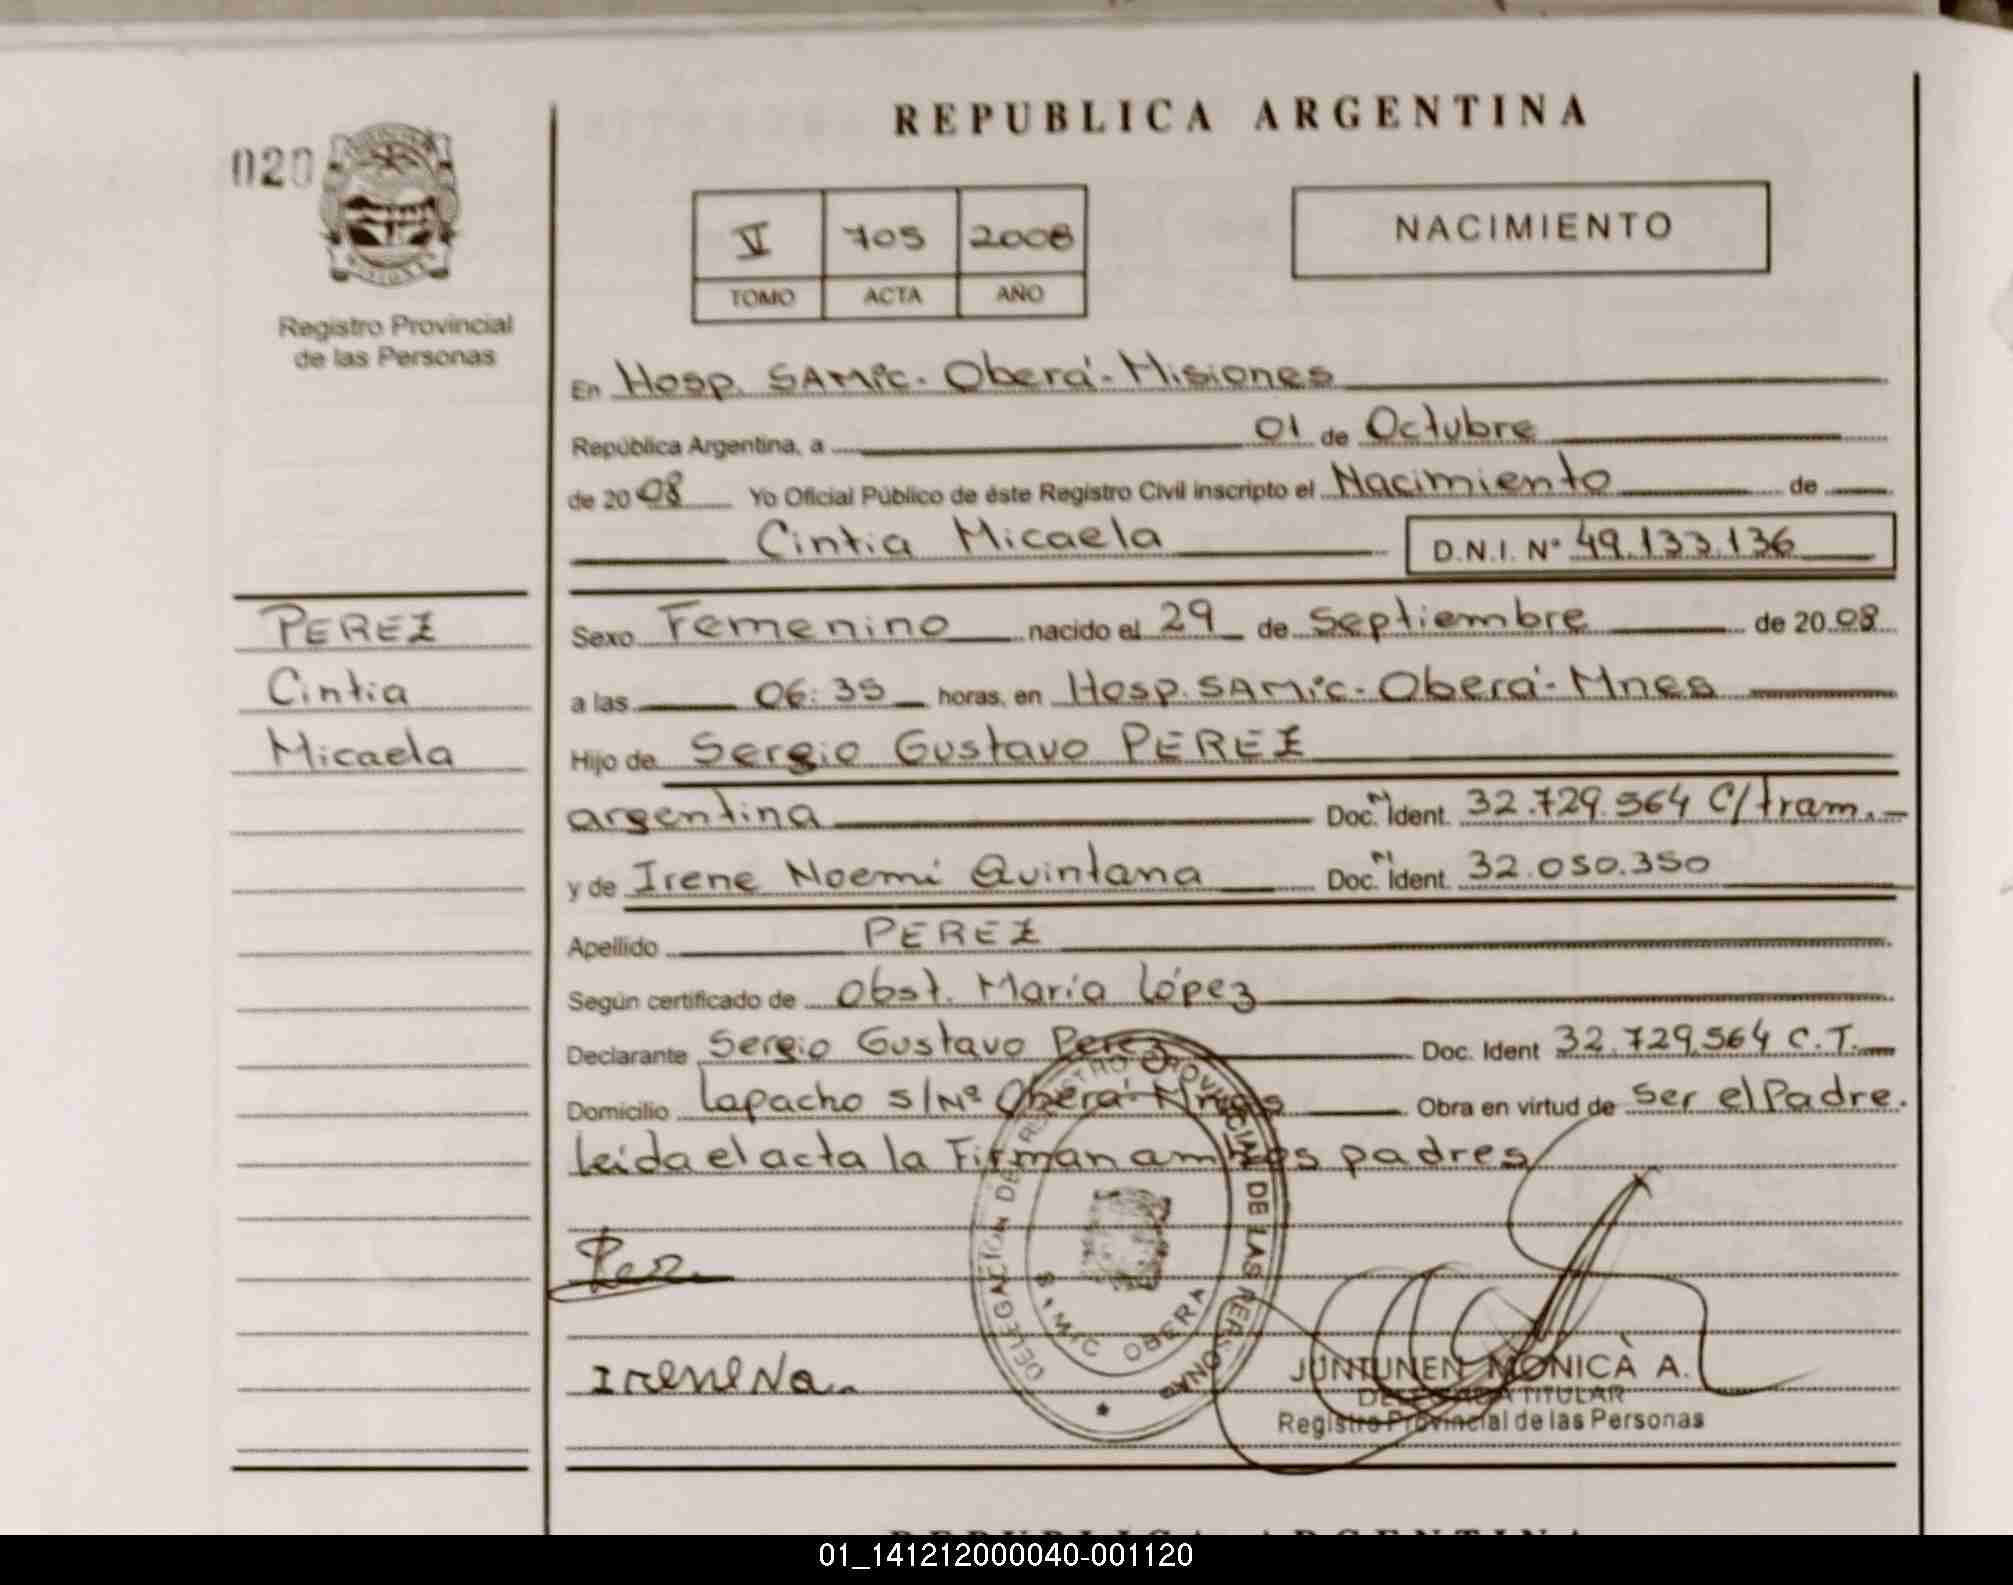 REPUBLICA ARGENTINA
020
V 705 2008
TOMO ACTA AÑO
NACIMIENTO
Registro Provincial
de las Personas
En Hosp. SAMIC - Oberá - Misiones
República Argentina, a 01 de Octubre
de 2008 Yo Oficial Público de éste Registro Civil inscripto el Nacimiento de
Cintia Micaela D.N.I. Nº 49.133.136
PEREZ
Cintia
Micaela
Sexo Femenino nacido el 29 de Septiembre de 2008
a las 06:35 horas, en Hosp. SAMIC - Oberá - Mnes
Hijo de Sergio Gustavo PEREZ
argentina Doc. N Ident. 32.729.564 C/tram.-
y de Irene Noemí Quintana Doc. N Ident. 32.050.350
Apellido PEREZ
Según certificado de Obst. María López
Declarante Sergio Gustavo Perez Doc. Ident 32.729.564 C.T.
Domicilio Lapacho s/Nº Oberá - Mnes Obra en virtud de Ser el Padre.
Leída el acta la Firman ambos padres
DELEGACIÓN DEL REGISTRO PROVINCIAL DE LAS PERSONAS
SAMIC OBERA
Irene Na.
JUNTUNEN MONICA A.
DELEGADA TITULAR
Registro Provincial de las Personas
REPUBLICA ARGENTINA
01_141212000040-001120